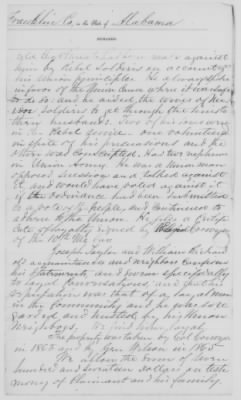 Franklin Co, in the State of Alabama.
REMARKS.
against
him by Rebel Soldiers on account of
his Union principles. He always spoke
in favor of the Union cause where it was safe
to do so and he aided the wives of
soldiers to get through the lines to
their husbands. Two of his sons were
in the Rebel service - one volunteered
in spite of his persuasions and the
other was conscripted. Had two nephews
in Union Army. He was a Union man
opposed secession and talked against
it, and would have voted against it
if the ordinance had been submitted
to a vote of the people, and continued to
adhere to the Union. He files a certifi-
cate of loyalty signed by
of the 10th
Joseph Taylor and William Richard
old acquaintances and neighbors confirm
his statements, and swear specifically
to loyal conversations, and that his
reputation was that of a loyal man
in the community and he was so re-
garded and trusted by his Union
neighbors. We find him loyal.
The property was taken by Col
in 1863 and by Gen Wilson in 1865.
We allow the sum of seven
hundred and seventeen dollars on testi-
mony of Claimant and his family.